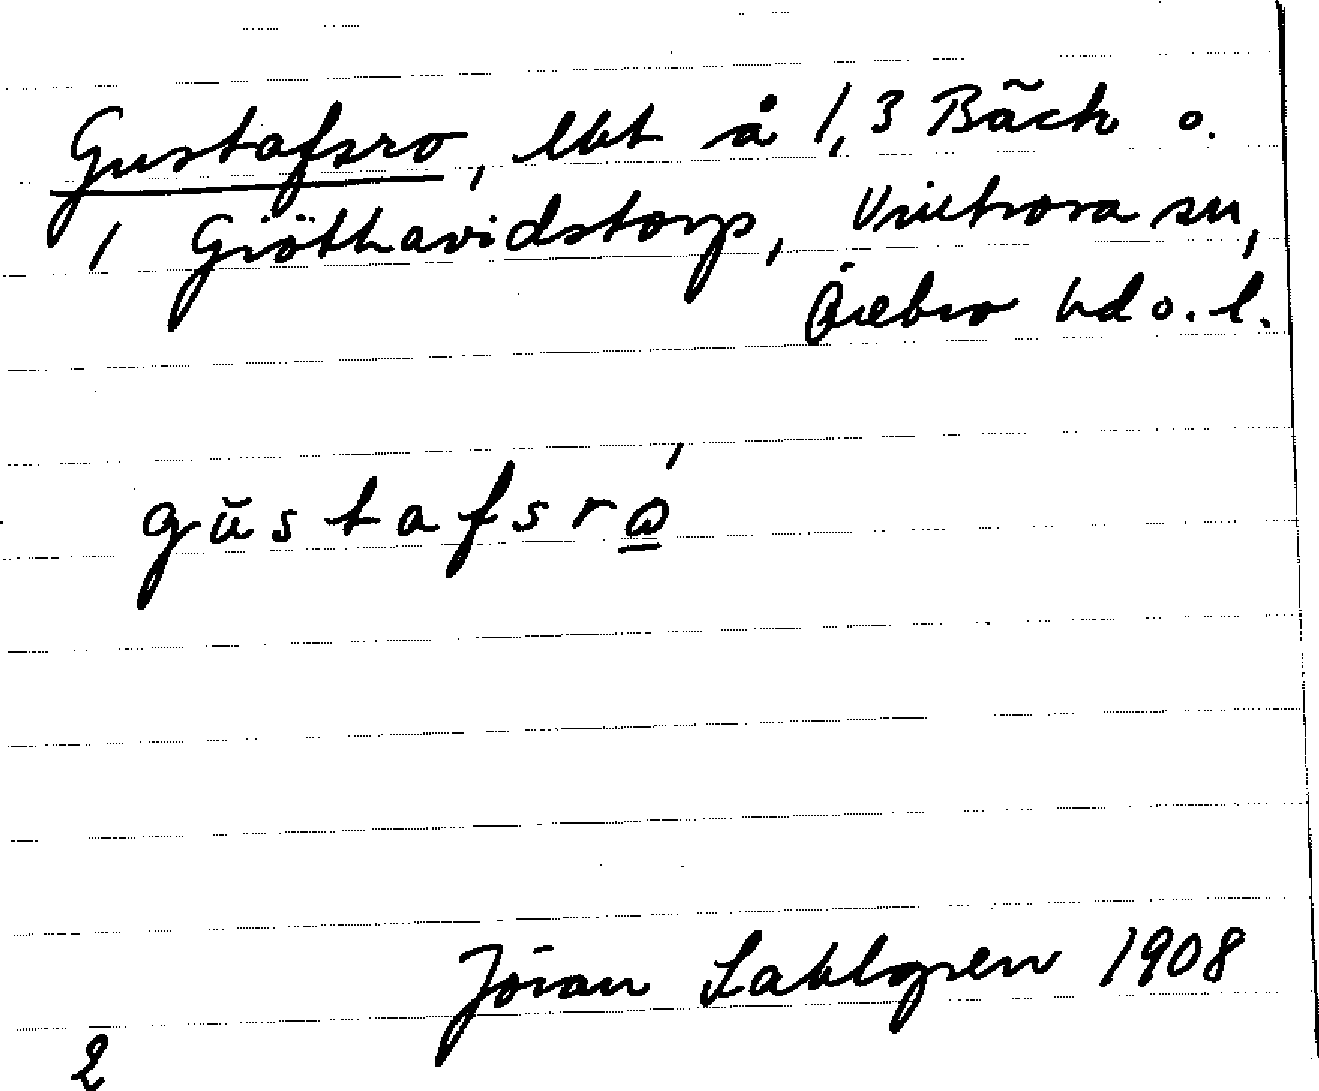 Gustafsro, lht å 1,3 Bäck o.
1 Gröthavidstorp, Vintrosa sn,
Örebro hd o. l.
gŭstafsrò́
Jöran Sahlgren 1908
2